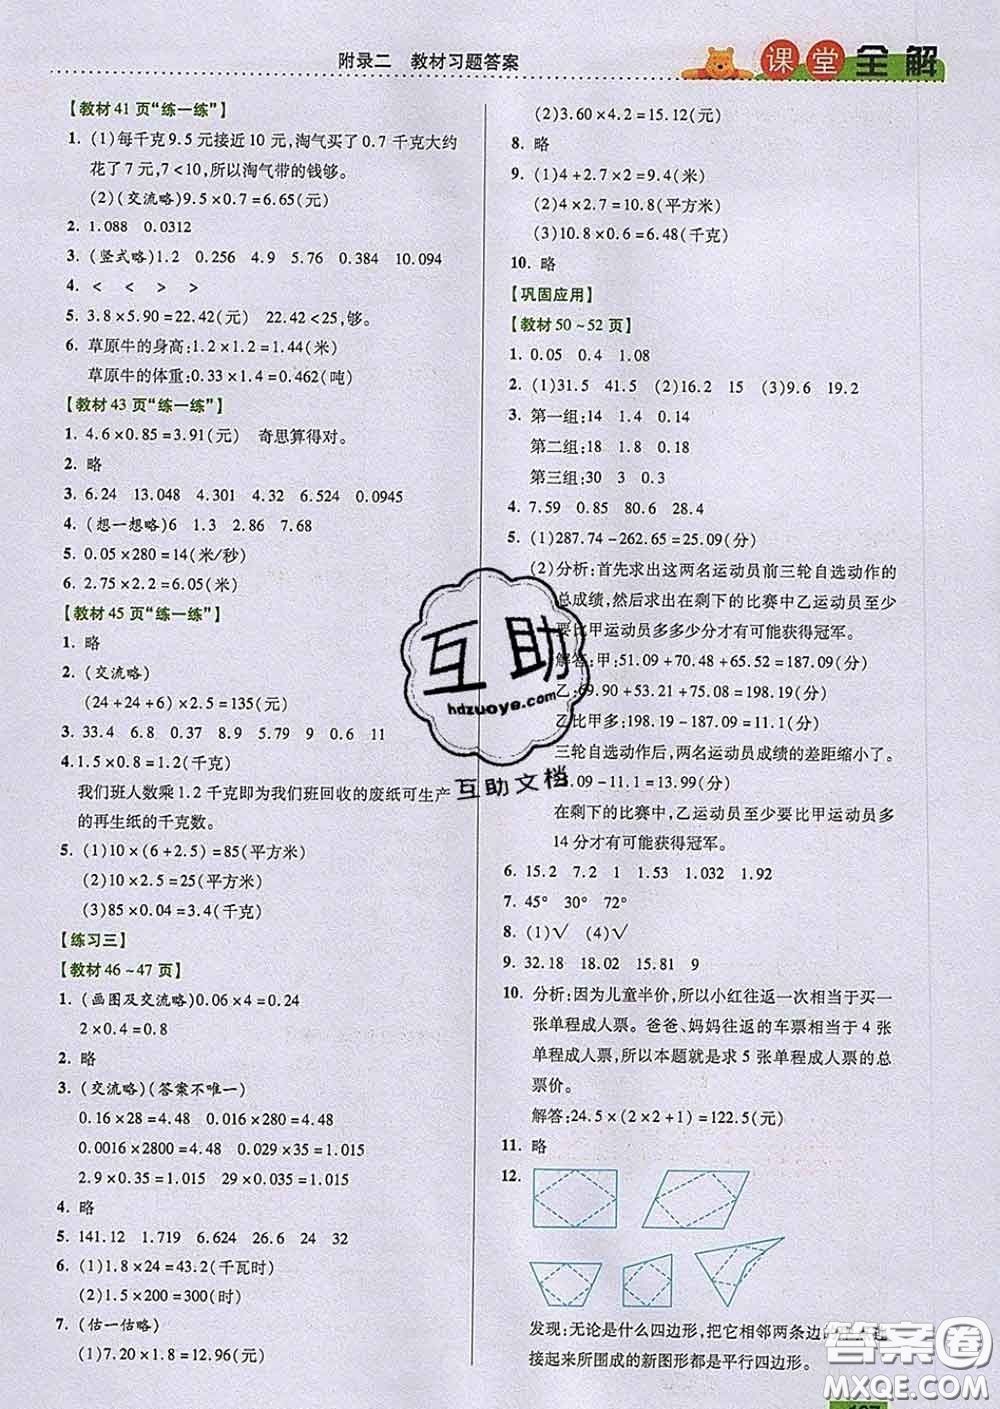 附录二 教材习题答案
课堂全解
【教材 41 页“练一练”】
1. (1)每千克 9.5 元接近 10 元,淘气买了 0.7 千克大约
花了 7 元,7＜10,所以淘气带的钱够。
(2)(交流略)9.5×0.7=6.65(元)
2. 1.088 0.0312
3. (竖式略)1.2 0.256 4.9 5.76 0.384 10.094
4. ＜ ＜ ＞ ＞
5. 3.8×5.90=22.42(元) 22.42＜25,够。
6. 草原牛的身高:1.2×1.2=1.44(米)
草原牛的体重:0.33×1.4=0.462(吨)
【教材 43 页“练一练”】
1. 4.6×0.85=3.91(元) 奇思算得对。
2. 略
3. 6.24 13.048 4.301 4.32 6.524 0.0945
4. (想一想略)6 1.3 2.86 7.68
5. 0.05×280=14(米/秒)
6. 2.75×2.2=6.05(米)
【教材 45 页“练一练”】
1. 略
2. (交流略)
(24+24+6)×2.5=135(元)
3. 33.4 6.8 0.37 0.89 79 9 0.6 11
4.1.5×0.8=1.2(千克)
我们班人数乘 1.2 千克即为我们班回收的废纸可生产
的再生纸的千克数。
5. (1)10×(6+2.5)=85(平方米)
(2)10×2.5=25(平方米)
(3)85×0.04=3.4(千克)
【练习三】
【教材 46~47 页】
1. (画图及交流略)0.06×4=0.24
2×0.4=0.8
2. 略
3. (交流略)(答案不唯一)
0.16×28=4.48 0.016×280=4.48
0.0016×2800=4.48 0.29×3.5=1.015
2.9×0.35=1.015 29×0.035=1.015
4. 略
5. 141.12 1.719 6.624 26.6 24 32
6. (1)1.8×24=43.2(千瓦时)
(2)1.5×200=300(时)
7. (估一估略)
(1)7.20×1.8=12.96(元)
(2)3.60×4.2=15.12(元)
8. 略
9. (1)4+2.7×2=9.4(米)
(2)4×2.7=10.8(平方米)
(3)10.8×0.6=6.48(千克)
10. 略
【巩固应用】
【教材 50~52 页】
1. 0.05 0.4 1.08
2. (1)31.5 41.5 (2)16.2 15 (3)9.6 19.2
3. 第一组:14 1.4 0.14
第二组:18 1.8 0.18
第三组:30 3 0.3
4. 7.59 0.85 80.6 28.4
5. (1)287.74-262.65=25.09(分)
(2)分析:首先求出这两名运动员前三轮自选动作的
总成绩,然后求出在剩下的比赛中乙运动员至少
要比甲运动员多多少分才有可能获得冠军。
解答:甲:51.09+70.48+65.52=187.09(分)
乙:69.90+53.21+75.08=198.19(分)
乙比甲多:198.19-187.09=11.1(分)
三轮自选动作后,两名运动员成绩的差距缩小了。
.09-11.1=13.99(分)
在剩下的比赛中,乙运动员至少要比甲运动员多
14 分才有可能获得冠军。
6. 15.2 7.2 1 1.53 1.032 1.92
7. 45° 30° 72°
8. (1)√ (4)√
9. 32.18 18.02 15.81 9
10. 分析:因为儿童半价,所以小红往返一次相当于买一
张单程成人票。爸爸、妈妈往返的车票相当于 4 张
单程成人票,所以本题就是求 5 张单程成人票的总
票价。
解答:24.5×(2×2+1)=122.5(元)
11. 略
12.
发现:无论是什么四边形,把它相邻两条边的
接起来所围成的新图形都是平行四边形。
互助
hdzuoye.com
互助文档
答案圈
MXQE.COM